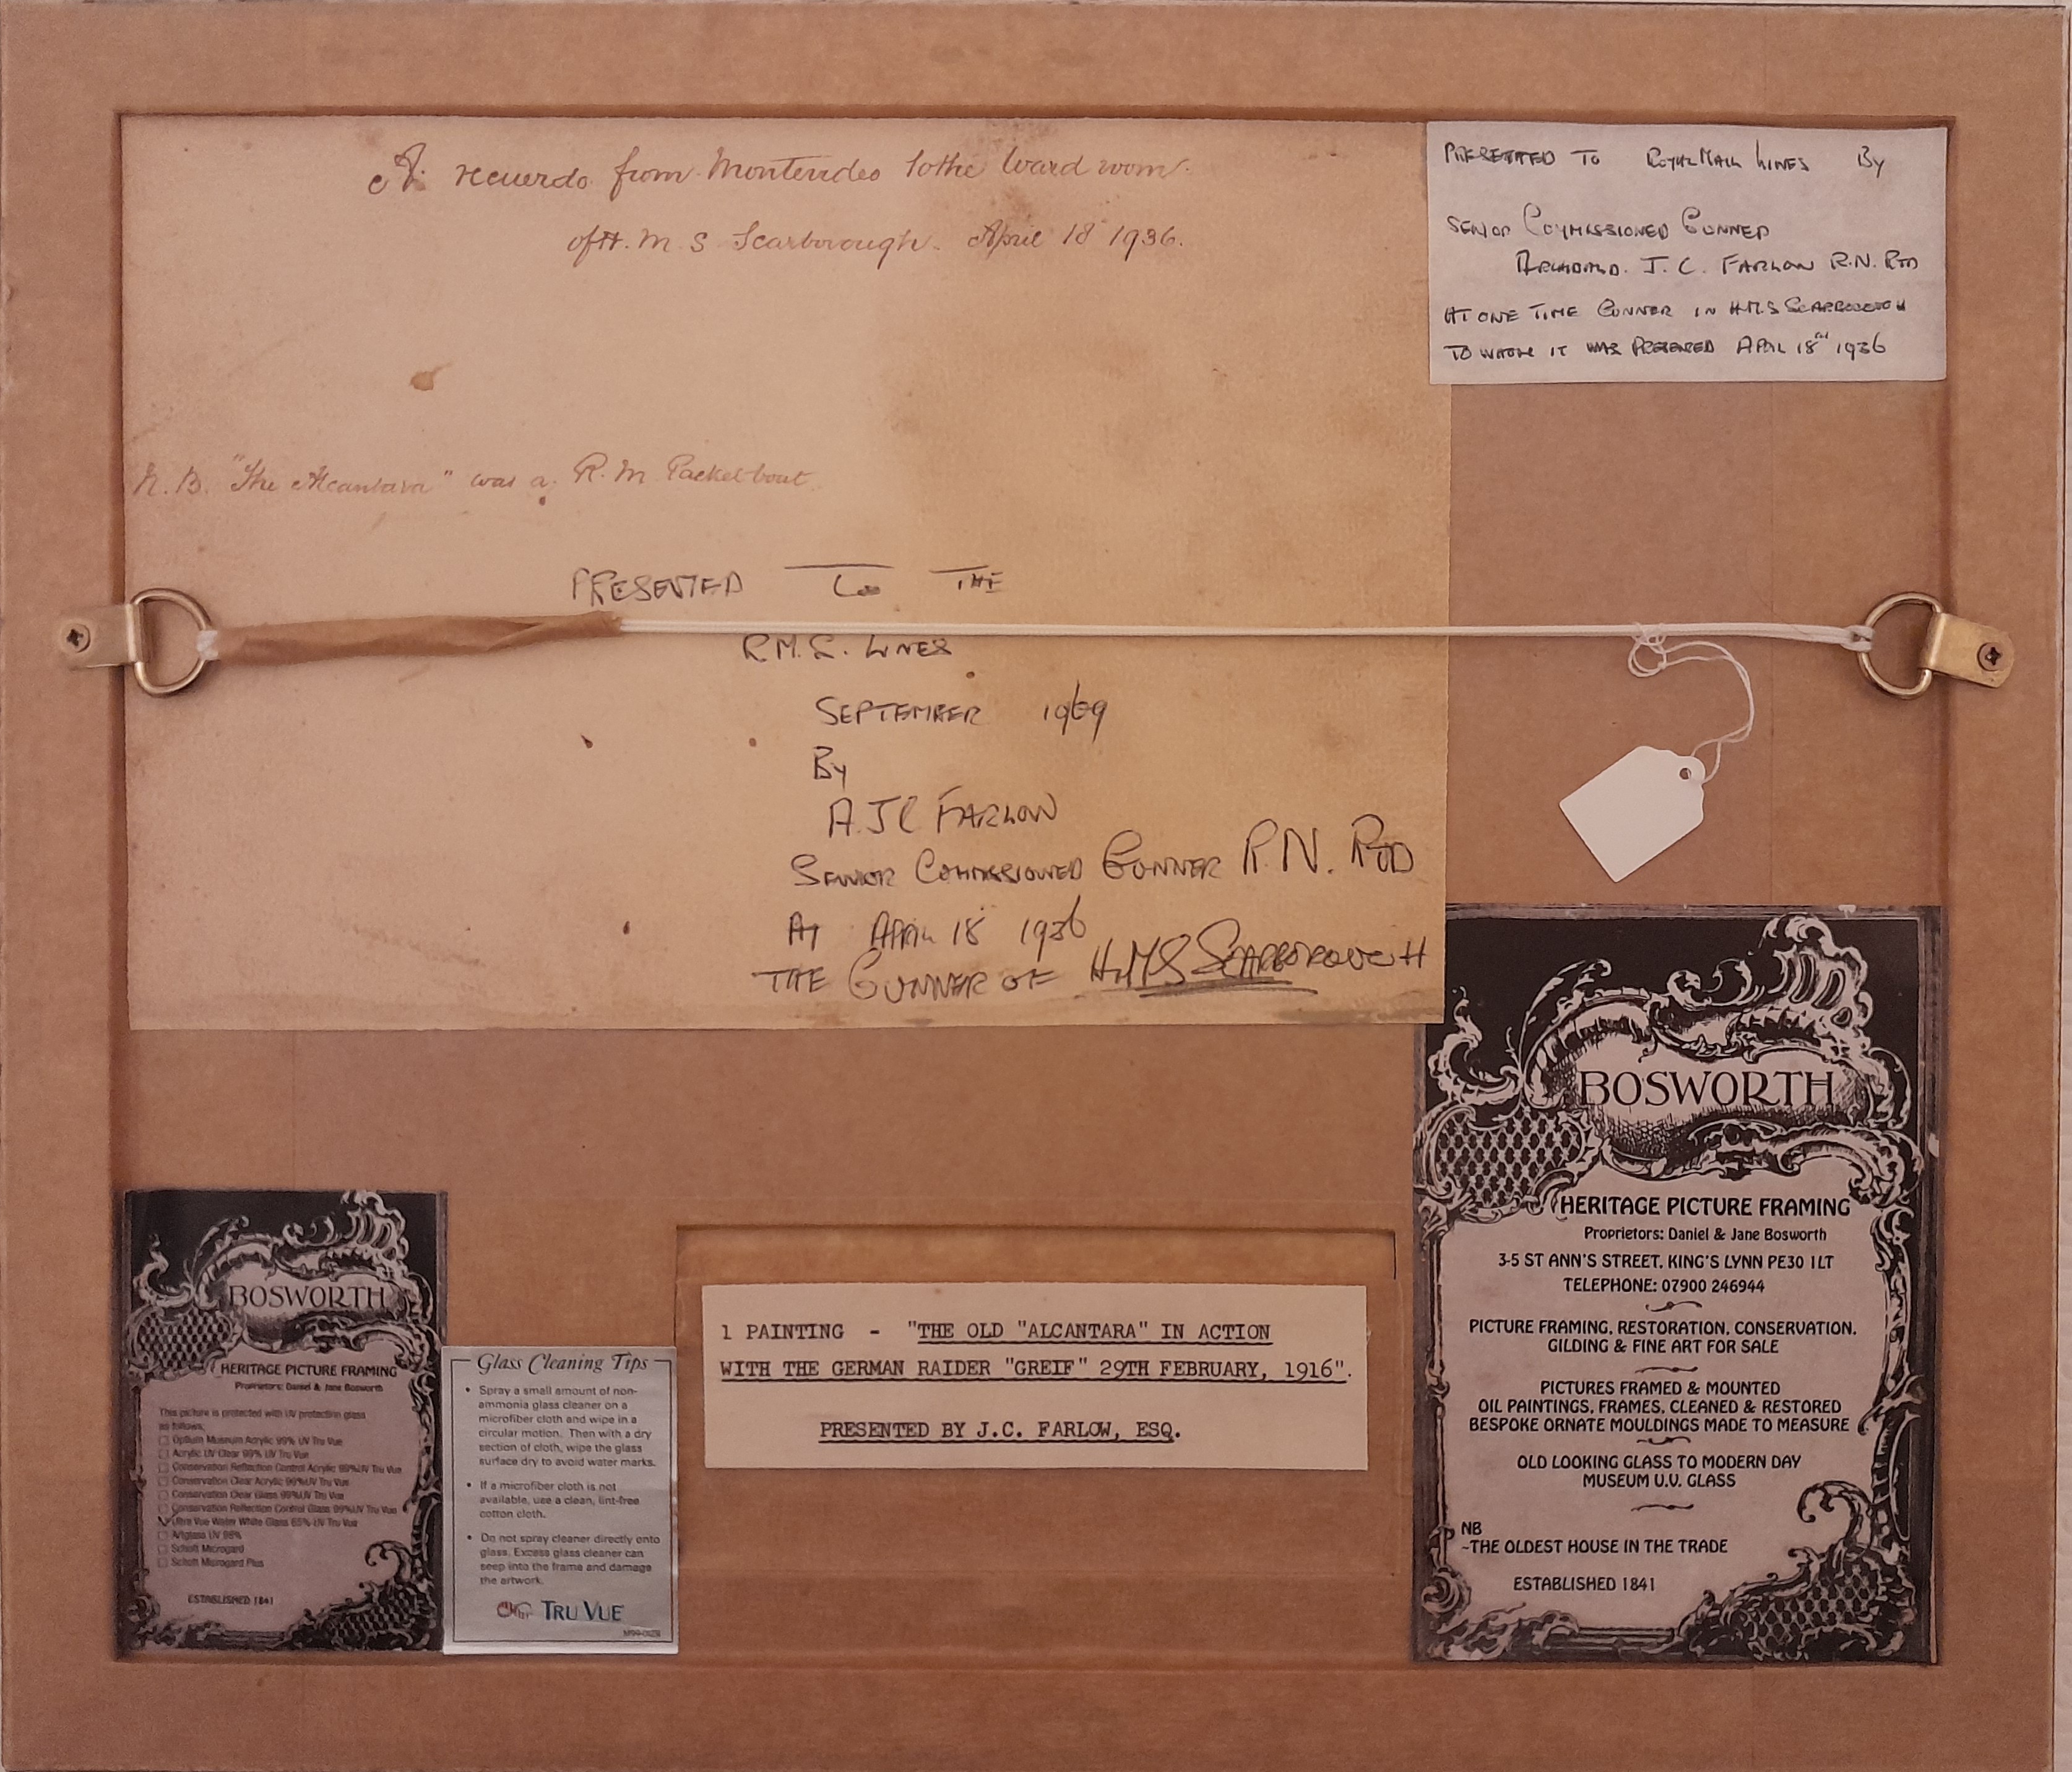 A. recuerdo from Montevideo to the Ward room
of H. M. S Scarborough. April 18 1936.
N. B. "The Alcantara" was a R. M Packet boat
PRESENTED To THE
R.M.S. LINES
SEPTEMBER 1969
By
A. J C FARLOW
SENIOR COMMISSIONED GUNNER R.N. RTD
AT APRIL 18 1936
THE GUNNER OF H.M.S SCARBOROUGH
PRESENTED TO ROYAL MAIL LINES By
SENIOR COMMISSIONED GUNNER
ARCHIBALD. J. C. FARLOW R.N. RTD
AT ONE TIME GUNNER IN H.M.S SCARBOROUGH
TO WHOM IT WAS PRESENTED APRIL 18TH 1936
BOSWORTH
HERITAGE PICTURE FRAMING
Proprietors: Daniel & Jane Bosworth
This picture is protected with UV protection glass
as follows:
Optium Museum Acrylic 99% UV Tru Vue
Acrylic UV Clear 99% UV Tru Vue
Conservation Reflection Control Acrylic 99%UV Tru Vue
Conservation Clear Acrylic 99%UV Tru Vue
Conservation Clear Glass 99%UV Tru Vue
Conservation Reflection Control Glass 99%UV Tru Vue
Ultra Vue Water White Glass 65% UV Tru Vue
Artglass UV 98%
Schott Mirogard
Schott Mirogard Plus
ESTABLISHED 1841
Glass Cleaning Tips
• Spray a small amount of non-
ammonia glass cleaner on a
microfiber cloth and wipe in a
circular motion. Then with a dry
section of cloth, wipe the glass
surface dry to avoid water marks.
• If a microfiber cloth is not
available, use a clean, lint-free
cotton cloth.
• Do not spray cleaner directly onto
glass. Excess glass cleaner can
seep into the frame and damage
the artwork.
TRU VUE
1 PAINTING - "THE OLD "ALCANTARA" IN ACTION
WITH THE GERMAN RAIDER "GREIF" 29TH FEBRUARY, 1916".
PRESENTED BY J.C. FARLOW, ESQ.
BOSWORTH
HERITAGE PICTURE FRAMING
Proprietors: Daniel & Jane Bosworth
3-5 ST ANN'S STREET, KING'S LYNN PE30 1LT
TELEPHONE: 07900 246944
PICTURE FRAMING, RESTORATION, CONSERVATION,
GILDING & FINE ART FOR SALE
PICTURES FRAMED & MOUNTED
OIL PAINTINGS, FRAMES, CLEANED & RESTORED
BESPOKE ORNATE MOULDINGS MADE TO MEASURE
OLD LOOKING GLASS TO MODERN DAY
MUSEUM U.V. GLASS
NB
~THE OLDEST HOUSE IN THE TRADE
ESTABLISHED 1841